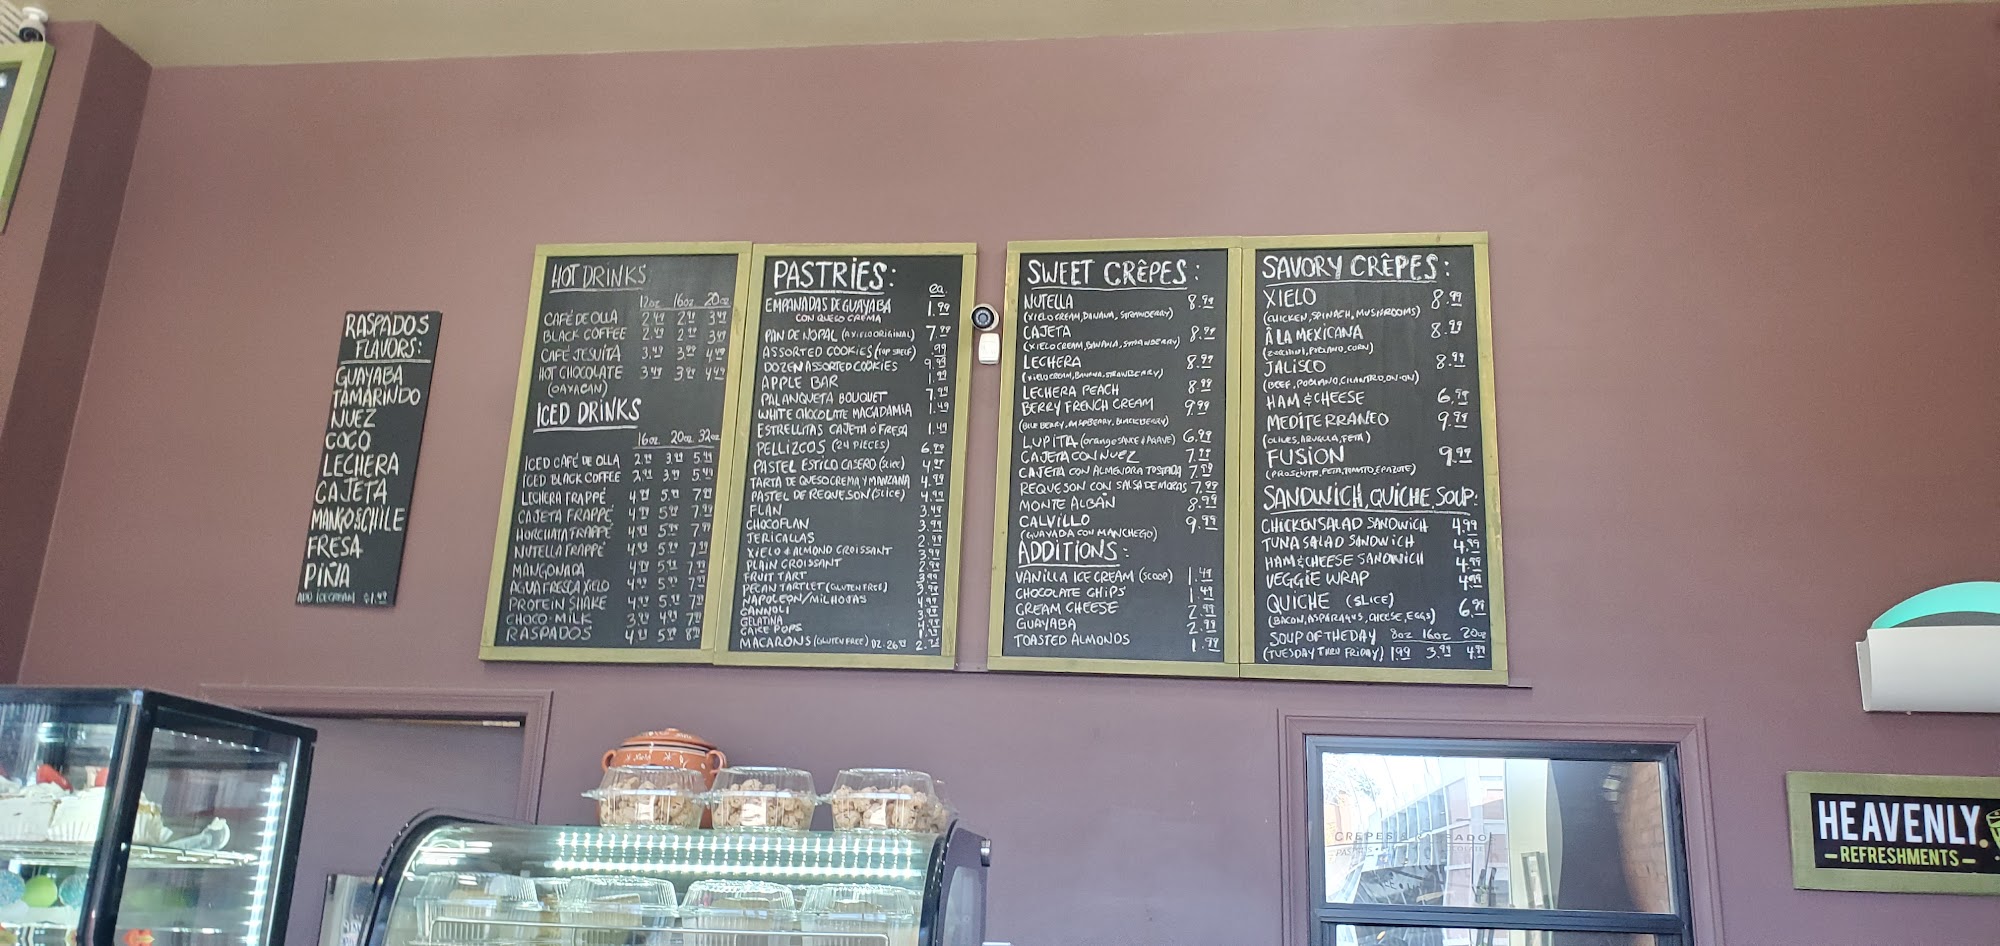 RASPADOS
FLAVORS:
GUAYABA
TAMARINDO
NUEZ
COCO
LECHERA
CAJETA
MANGO & CHILE
FRESA
PIÑA
ADD ICE CREAM $1.49
HOT DRINKS
12oz 16oz 20oz
CAFÉ DE OLLA 2.49 2.99 3.49
BLACK COFFEE 2.49 2.99 3.49
CAFÉ JESUITA 3.49 3.99 4.49
HOT CHOCOLATE 3.49 3.99 4.49
(OAXACAN)
ICED DRINKS
16oz 20oz 32oz
ICED CAFÉ DE OLLA 2.99 3.99 5.49
ICED BLACK COFFEE 2.99 3.99 5.49
LECHERA FRAPPÉ 4.99 5.99 7.99
CAJETA FRAPPÉ 4.99 5.99 7.99
HORCHATA FRAPPÉ 4.99 5.99 7.99
NUTELLA FRAPPÉ 4.99 5.99 7.99
MANGONADA 4.99 5.99 7.99
AGUA FRESCA XIELO 4.99 5.99 7.99
PROTEIN SHAKE 4.99 5.99 7.99
CHOCO-MILK 3.99 4.99 7.99
RASPADOS 4.99 5.99 8.99
PASTRIES:
ea.
EMPANADAS DE GUAYABA 1.99
CON QUESO CREMA
PAN DE NOPAL (A XIELO ORIGINAL) 7.99
ASSORTED COOKIES (TOP SHELF) .99
DOZEN ASSORTED COOKIES 9.99
APPLE BAR 1.99
PALANQUETA BOUQUET 7.99
WHITE CHOCOLATE MACADAMIA 1.49
ESTRELLITAS CAJETA Ó FRESA 1.49
PELLIZCOS (24 PIECES) 6.99
PASTEL ESTILO CASERO (SLICE) 4.99
TARTA DE QUESO CREMA Y MANZANA 4.99
PASTEL DE REQUESON (SLICE) 4.99
FLAN 3.49
CHOCOFLAN 3.99
JERICALLAS 2.99
XIELO & ALMOND CROISSANT 3.99
PLAIN CROISSANT 2.99
FRUIT TART 3.99
PECAN TARTLET (GLUTEN FREE) 3.99
NAPOLEON/MILHOJAS 4.99
CANNOLI 3.99
GELATINA 4.99
CAKE POPS 1.99
MACARONS (GLUTEN FREE) DZ. 26.99 2.99
SWEET CRÊPES:
NUTELLA 8.99
(XIELO CREAM, BANANA, STRAWBERRY)
CAJETA 8.99
(XIELO CREAM, BANANA, STRAWBERRY)
LECHERA 8.99
(XIELO CREAM, BANANA, STRAWBERRY)
LECHERA PEACH 8.99
BERRY FRENCH CREAM 9.99
(BLUEBERRY, RASPBERRY, BLACKBERRY)
LUPITA (ORANGE SAUCE & AGAVE) 6.99
CAJETA CON NUEZ 7.99
CAJETA CON ALMENDRA TOSTADA 7.99
REQUESON CON SALSA DE MORAS 7.99
MONTE ALBÁN 8.99
CALVILLO 9.99
(GUAYABA CON MANCHEGO)
ADDITIONS:
VANILLA ICE CREAM (SCOOP) 1.49
CHOCOLATE CHIPS 1.49
CREAM CHEESE 2.99
GUAYABA 2.99
TOASTED ALMONDS 1.99
SAVORY CRÊPES:
XIELO 8.99
(CHICKEN, SPINACH, MUSHROOMS)
Â LA MEXICANA 8.99
(ZUCCHINI, POBLANO, CORN)
JALISCO 8.99
(BEEF, POBLANO, CILANTRO, ONION)
HAM & CHEESE 6.99
MEDITERRANEO 9.99
(OLIVES, ARUGULA, FETA)
FUSION 9.99
(PROSCIUTTO, FETA, TOMATO, EPAZOTE)
SANDWICH, QUICHE, SOUP:
CHICKEN SALAD SANDWICH 4.99
TUNA SALAD SANDWICH 4.99
HAM & CHEESE SANDWICH 4.99
VEGGIE WRAP 4.99
QUICHE (SLICE) 6.99
(BACON, ASPARAGUS, CHEESE, EGGS)
SOUP OF THE DAY 8oz 16oz 20oz
(TUESDAY THRU FRIDAY) 1.99 3.99 4.99
HEAVENLY.
REFRESHMENTS